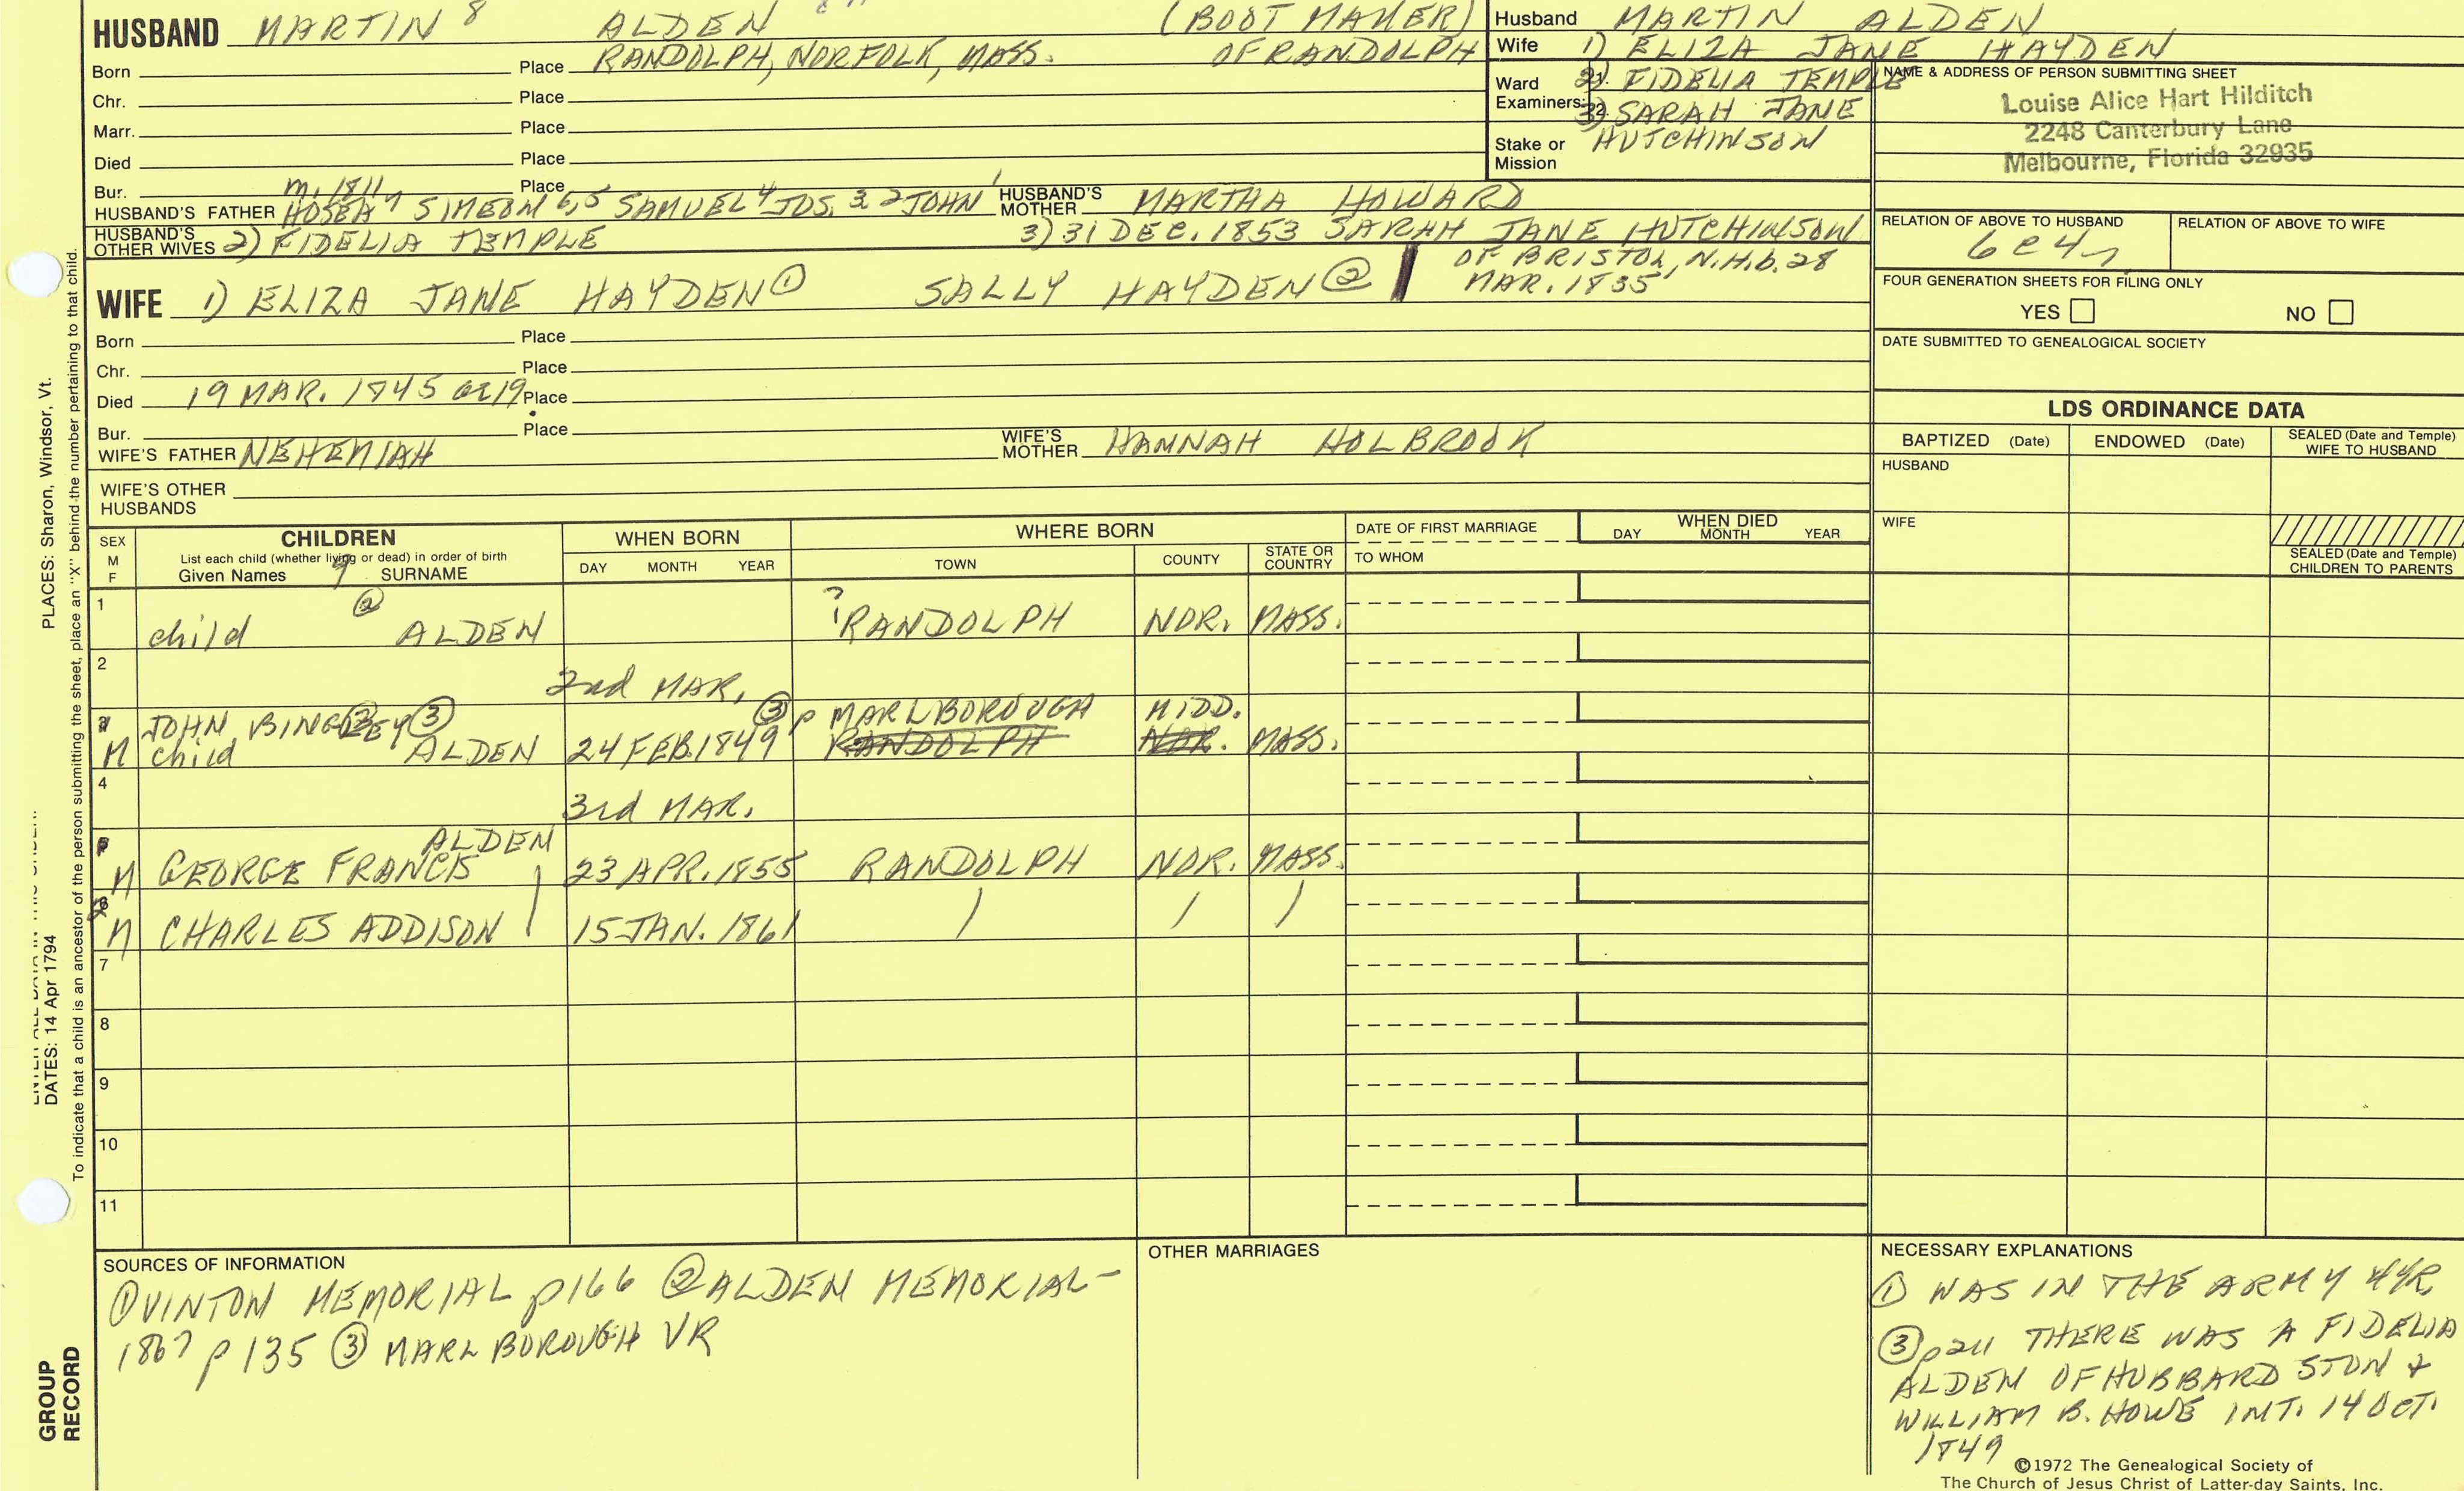 HUSBAND MARTIN 8 ALDEN (BOOT MAKER)
Born Place RANDOLPH, NORFOLK, MASS. OF RANDOLPH
Chr. Place
Marr. Place
Died Place
Bur. Place
m. 1811
HUSBAND'S FATHER HOSEA 7 SIMEON 6, 5 SAMUEL 4 JOS. 3 2 JOHN 1 HUSBAND'S MOTHER MARTHA HOWARD
HUSBAND'S OTHER WIVES 2) FIDELIA TEMPLE 3) 31 DEC. 1853 SARAH JANE HUTCHINSON
OF BRISTOL, N.H. b. 28
MAR. 1835
WIFE 1) ELIZA JANE HAYDEN ① SALLY HAYDEN ②
Born Place
Chr. Place
Died 19 MAR. 1845 ae 19 Place
Bur. Place
WIFE'S FATHER NEHEMIAH WIFE'S MOTHER HANNAH HOLBROOK
WIFE'S OTHER
HUSBANDS
Husband MARTIN ALDEN
Wife 1) ELIZA JANE HAYDEN
Ward Examiners: 1. 2) FIDELIA TEMPLE
2. 3) SARAH JANE
Stake or Mission HUTCHINSON
NAME & ADDRESS OF PERSON SUBMITTING SHEET
Louise Alice Hart Hilditch
2248 Canterbury Lane
Melbourne, Florida 32935
RELATION OF ABOVE TO HUSBAND RELATION OF ABOVE TO WIFE
6c4r
FOUR GENERATION SHEETS FOR FILING ONLY
YES NO
DATE SUBMITTED TO GENEALOGICAL SOCIETY
LDS ORDINANCE DATA
BAPTIZED (Date) ENDOWED (Date) SEALED (Date and Temple) WIFE TO HUSBAND
HUSBAND
WIFE
SEALED (Date and Temple) CHILDREN TO PARENTS
SEX M F CHILDREN WHEN BORN WHERE BORN DATE OF FIRST MARRIAGE WHEN DIED
List each child (whether living or dead) in order of birth
Given Names 9 SURNAME DAY MONTH YEAR TOWN COUNTY STATE OR COUNTRY TO WHOM DAY MONTH YEAR
1 child ② ALDEN ? RANDOLPH NOR. MASS.
2
2nd MAR.
JOHN BINGLEY ③ ③ p MARLBOROUGH MIDD.
M child ② ALDEN 24 FEB. 1849 RANDOLPH NOR. MASS.
4
3rd MAR.
ALDEN
M GEORGE FRANCIS 23 APR. 1855 RANDOLPH NOR. MASS.
2 M CHARLES ADDISON | 15 JAN. 1861 / / /
7
8
9
10
11
SOURCES OF INFORMATION
① VINTON MEMORIAL p 166 ② ALDEN MEMORIAL-
1867 p 135 ③ MARLBOROUGH VR
OTHER MARRIAGES
NECESSARY EXPLANATIONS
① WAS IN THE ARMY 4 YR.
③ p 211 THERE WAS A FIDELIA
ALDEN OF HUBBARDSTON &
WILLIAM B. HOWE INT. 14 OCT.
1849
©1972 The Genealogical Society of
The Church of Jesus Christ of Latter-day Saints, Inc.
PLACES: Sharon, Windsor, Vt.
To indicate that a child is an ancestor of the person submitting the sheet, place an "X" behind the number pertaining to that child.
DATES: 14 Apr 1794
GROUP
RECORD